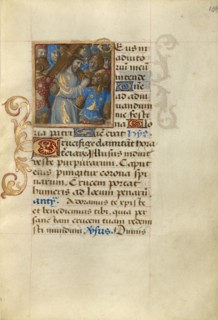 Deus in
adiuto
riū meū
intende
Dñe
ad adiu
uandum
me festi
na Glo
ria patri sicut erat ymns
Crucifige clamitant hora
tertiarū Illusus induit
veste purpurarum Caput
eius pungitur corona spi
narum Crucem portat
humeris ad locum penarū
antʒ Adoramus te xpiste
et benedicimus tibi quia per
sanctam crucem tuam redem
isti mundum